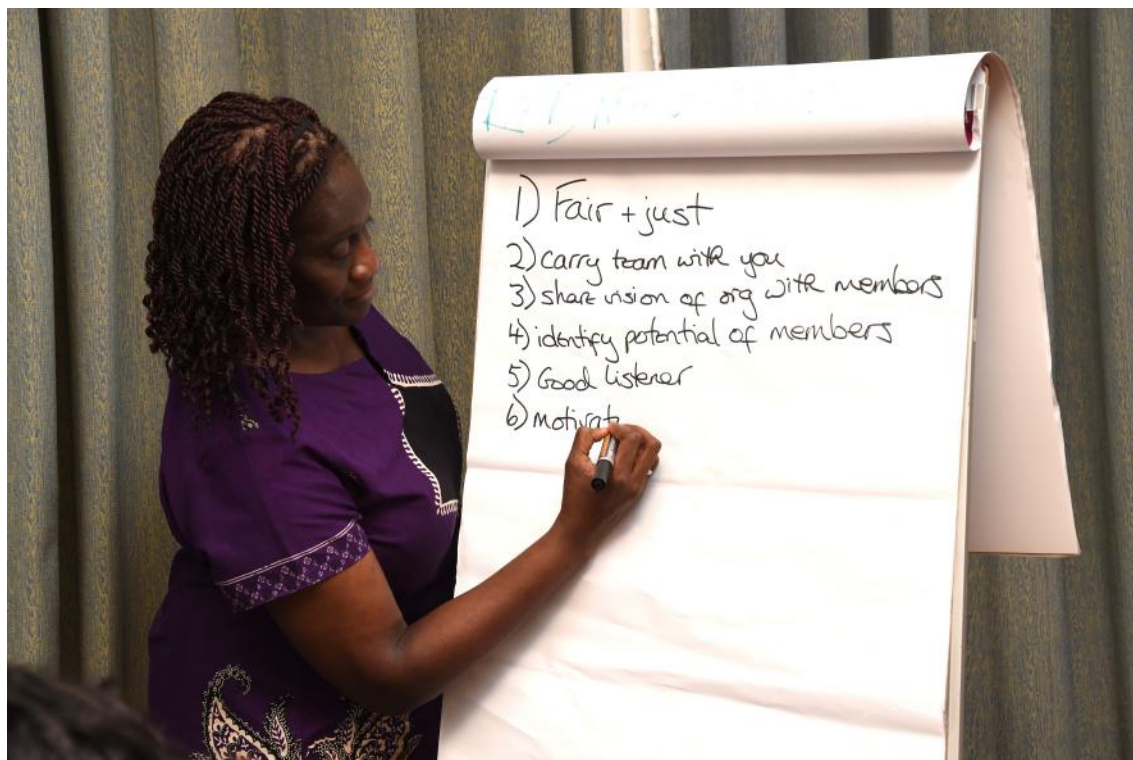 1) Fair + just
2) carry team with you
3) share vision of org with members
4) identify potential of members
5) Good listener
6) motivat